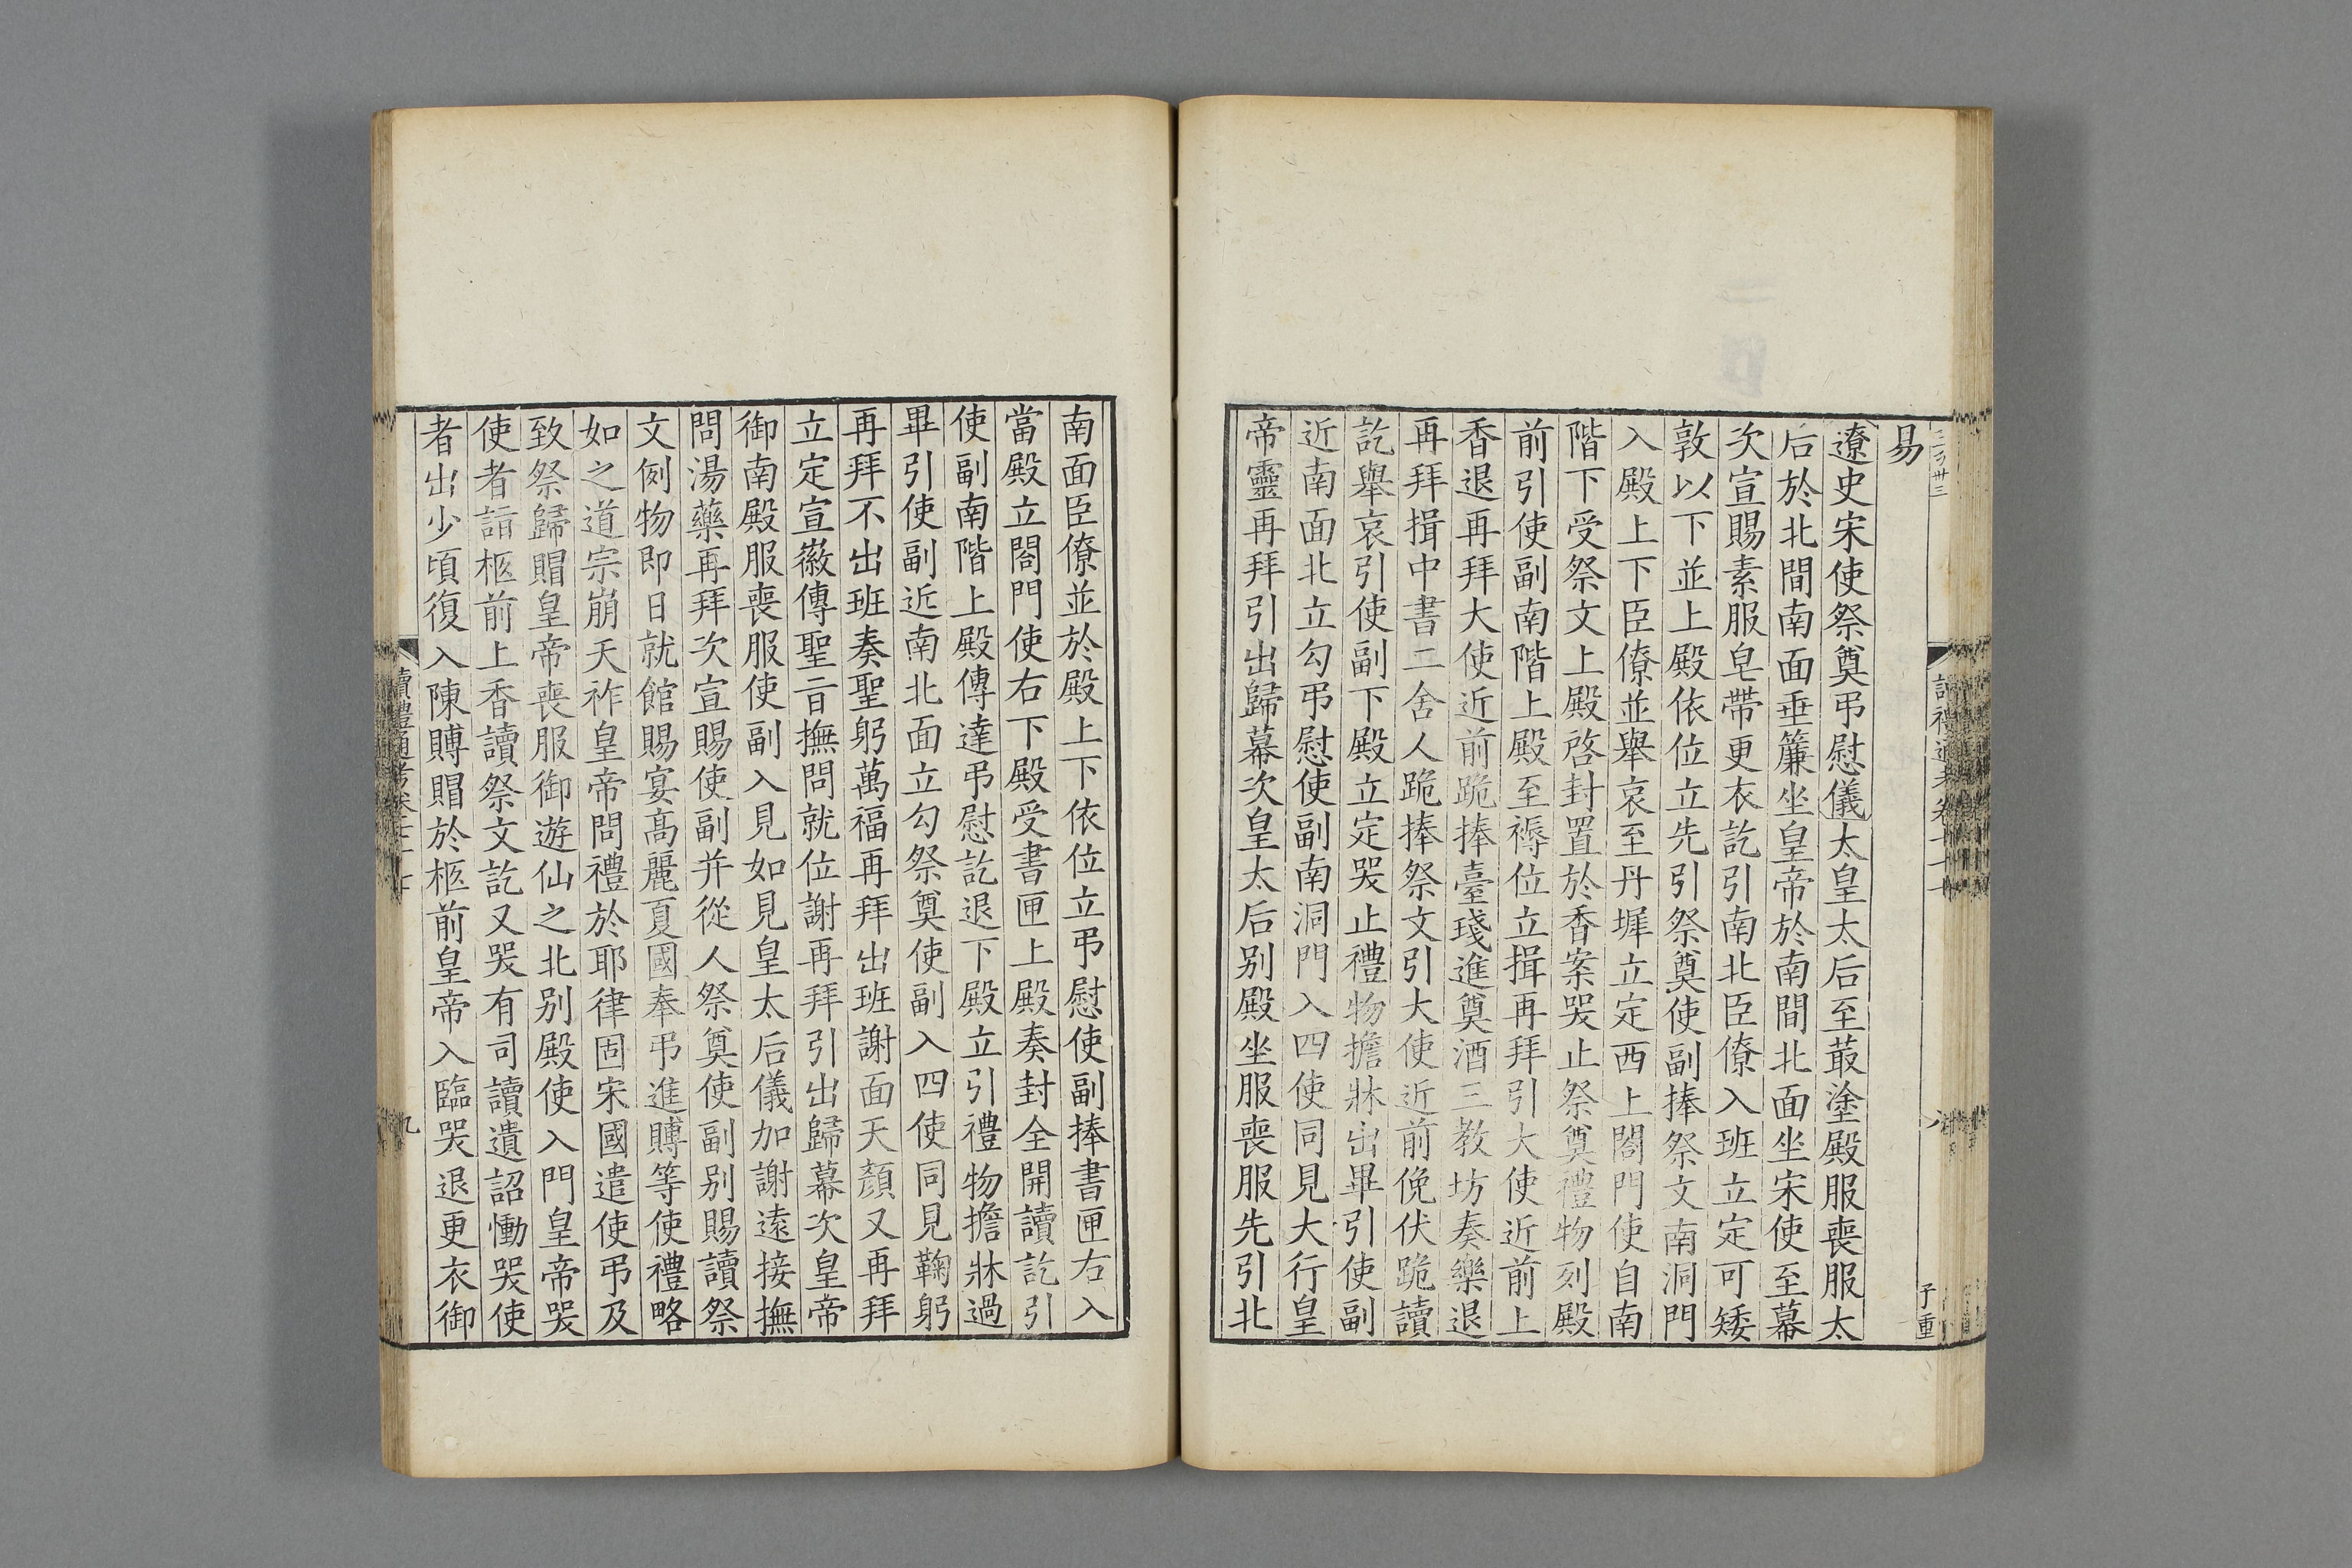 易
遼史宋使祭奠弔慰儀太皇太后至菆塗殿服喪服太
后於北間南面垂簾坐皇帝於南間北面坐宋使至幕
次宣賜素服皂帶更衣訖引南北臣僚入班立定可矮
敦以下並上殿依位立先引祭奠使副捧祭文南洞門
入殿上下臣僚並舉哀至丹墀立定西上閤門使自南
階下受祭文上殿啓封置於香案哭止祭奠禮物列殿
前引使副南階上殿至褥位立揖再拜引大使近前上
香退再拜大使近前跪捧臺琖進奠酒三教坊奏樂退
再拜揖中書二舍人跪捧祭文引大使近前俛伏跪讀
訖舉哀引使副下殿立定哭止禮物擔牀出畢引使副
近南面北立勾弔慰使副南洞門入四使同見大行皇
帝靈再拜引出歸幕次皇太后别殿坐服喪服先引北
南面臣僚並於殿上下依位立弔慰使副捧書匣右入
當殿立閤門使右下殿受書匣上殿奏封全開讀訖引
使副南階上殿傳達弔慰訖退下殿立引禮物擔牀過
畢引使副近南北面立勾祭奠使副入四使同見鞠躬
再拜不出班奏聖躬萬福再拜出班謝面天顏又再拜
立定宣徽傳聖旨撫問就位謝再拜引出歸幕次皇帝
御南殿服喪服使副入見如見皇太后儀加謝遠接撫
問湯藥再拜次宣賜使副并從人祭奠使副别賜讀祭
文例物即日就館賜宴高麗夏國奉弔進賻等使禮略
如之道宗崩天祚皇帝問禮於耶律固宋國遣使弔及
致祭歸賵皇帝喪服御遊仙之北别殿使入門皇帝哭
使者詣柩前上香讀祭文訖又哭有司讀遺詔慟哭使
者出少頃復入陳賻賵於柩前皇帝入臨哭退更衣御
讀禮通考卷
九
子重